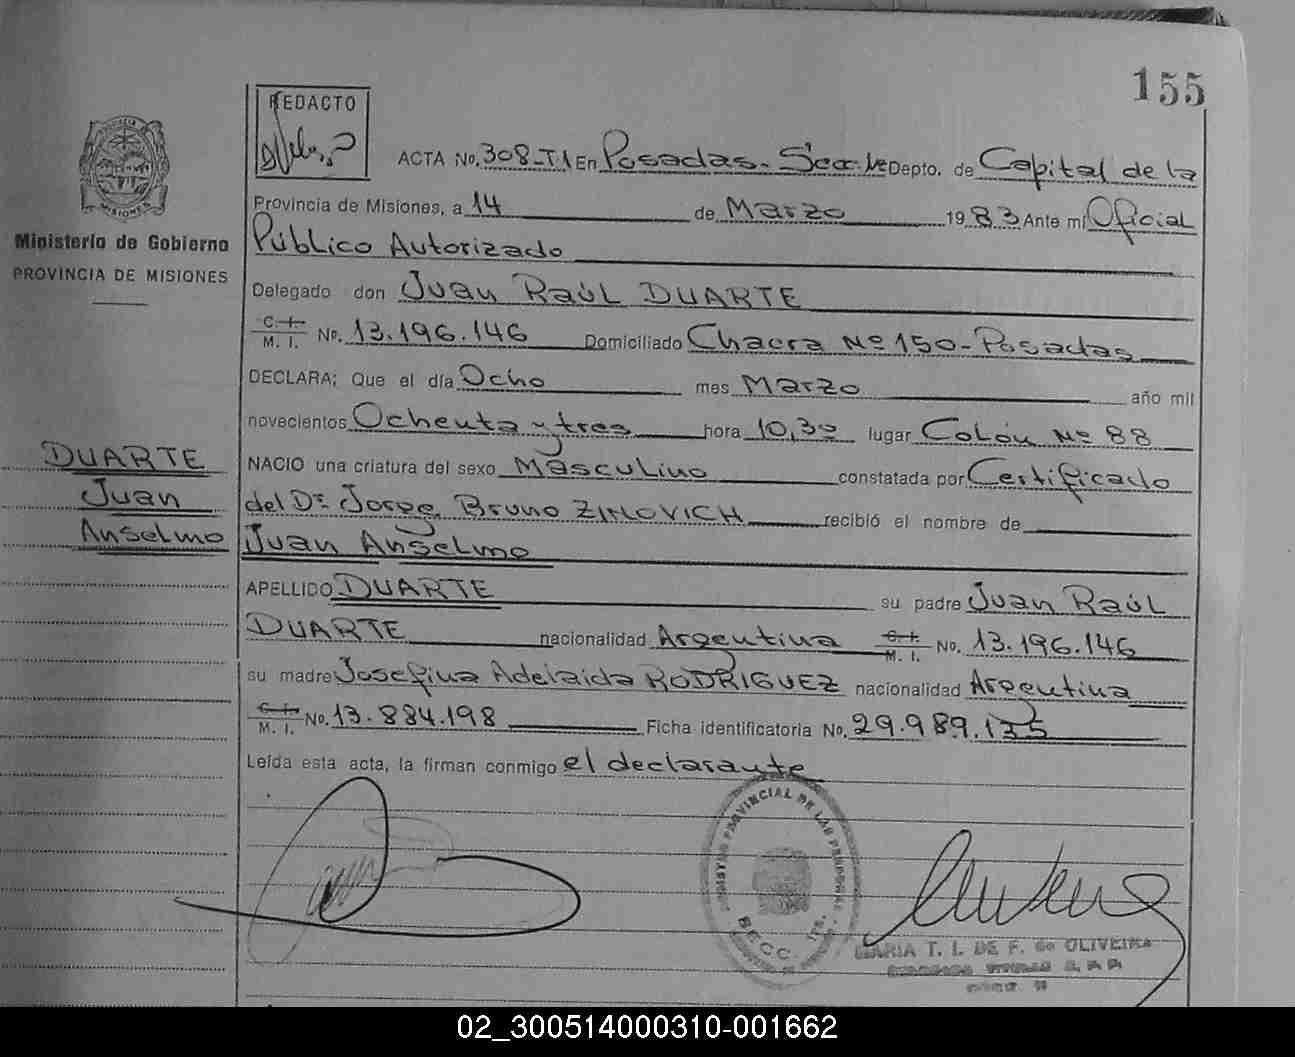 155
REDACTO
ACTA No. 308-T1 En Posadas-Secc. 1e Depto. de Capital de la
Provincia de Misiones, a 14 de Marzo 1983 Ante mí Oficial
Público Autorizado
Delegado don Juan Raúl DUARTE
C. I.
M. I. No. 13.196.146 Domiciliado Chacra Nº 150-Posadas
DECLARA; Que el día Ocho mes Marzo año mil
novecientos Ochenta y tres hora 10,30 lugar Colón Nº 88
NACIO una criatura del sexo Masculino constatada por Certificado
del Dr. Jorge Bruno ZIMOVICH recibió el nombre de
Juan Anselmo
APELLIDO DUARTE su padre Juan Raúl
DUARTE nacionalidad Argentina C. I. M. I. No. 13.196.146
su madre Josefina Adelaida RODRIGUEZ nacionalidad Argentina
C. I.
M. I. No. 13.884.198 Ficha identificatoria No. 29.989.135
Leída esta acta, la firman conmigo el declarante
PROVINCIA DE
MISIONES
Ministerio de Gobierno
PROVINCIA DE MISIONES
DUARTE
Juan
Anselmo
PROVINCIAL DE LAS PERSONAS
SECC. 1ra.
MARIA T. I. DE F. de OLIVEIRA
02_300514000310-001662